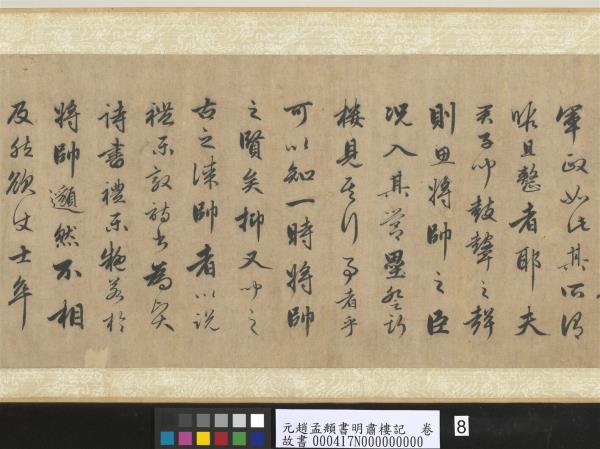 軍政如此其所謂
暇且整者耶夫
君子聞鼓鼙之聲
則思將帥之臣
況入其營壘登斯
樓見其行事者乎
可以知一時將帥
之賢矣抑又聞之
古之謀帥者以說
禮樂敦詩書為賢
詩書禮樂若於
將帥邈然不相
及然欲使士卒
元趙孟頫書明肅樓記 卷
故書 000417N000000000
8